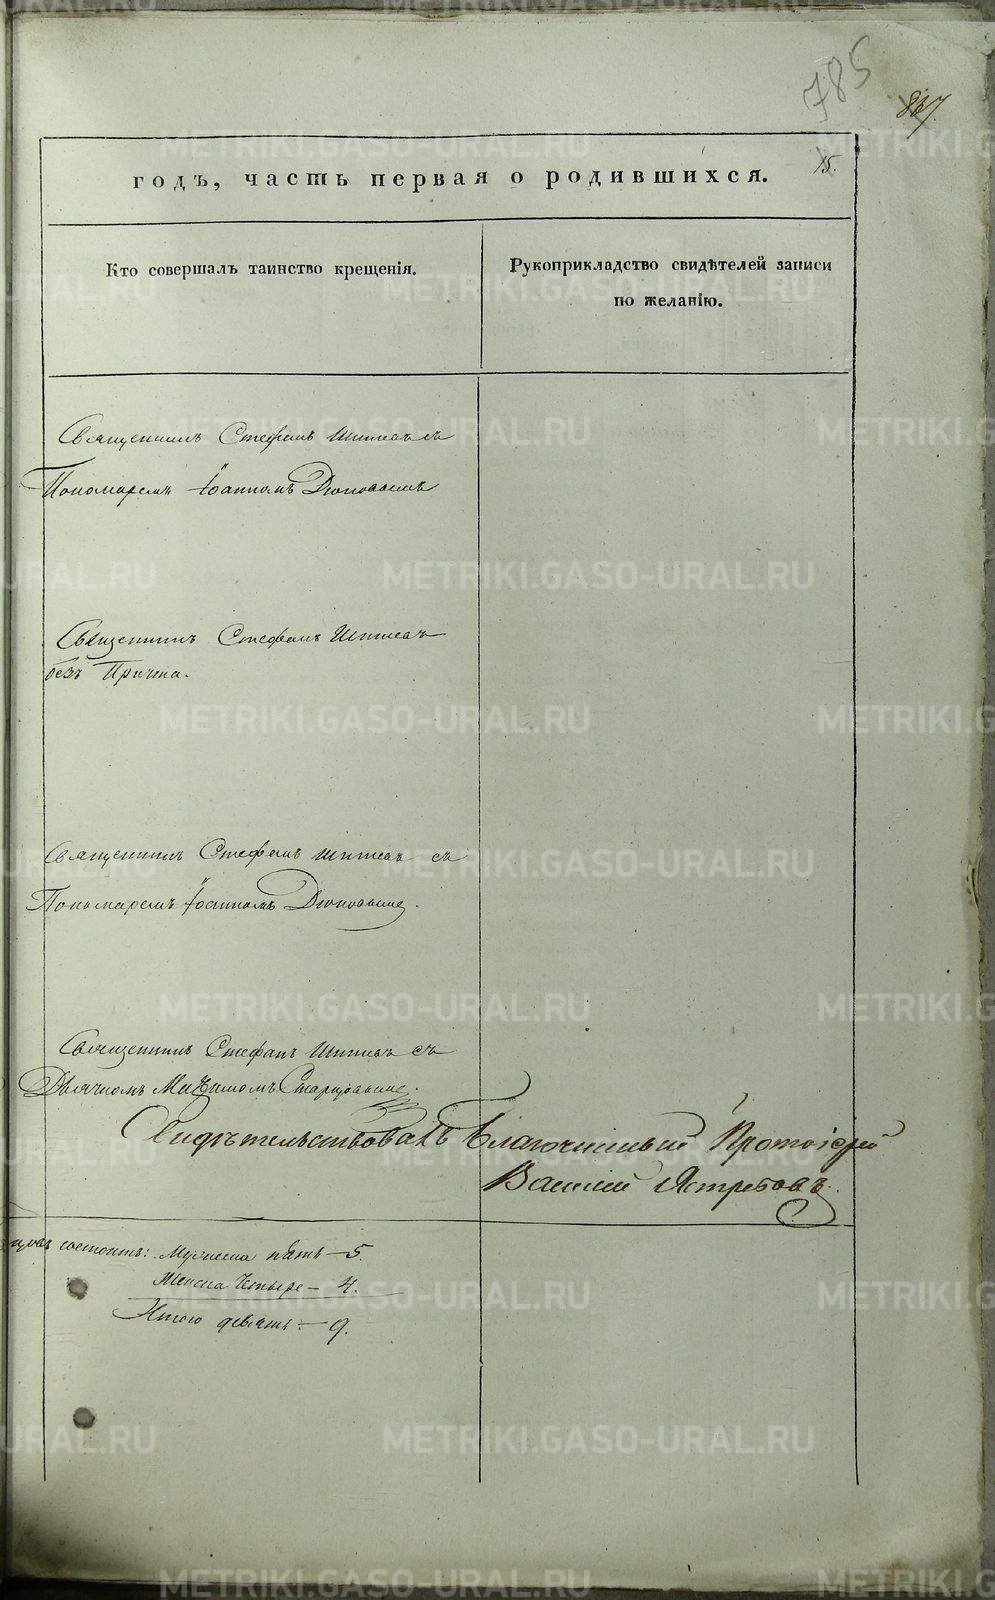 785
837.
15.
годъ, часть первая о родившихся.
Кто совершалъ таинство крещенія.
Рукоприкладство свидѣтелей записи
по желанію.
Священникъ Стефанъ съ
Пономаремъ Іоанномъ
Священникъ Стефанъ
безъ Причта.
Священникъ Стефанъ съ
Пономаремъ Іоанномъ
Священникъ Стефанъ съ
Дьячкомъ
Свидѣтельствовалъ Благочинный Протоіерей
Василій Ястребовъ.
состоитъ: Мужеска пять — 5.
Женска Четыре — 4.
Итого девять — 9.
METRIKI.GASO-URAL.RU